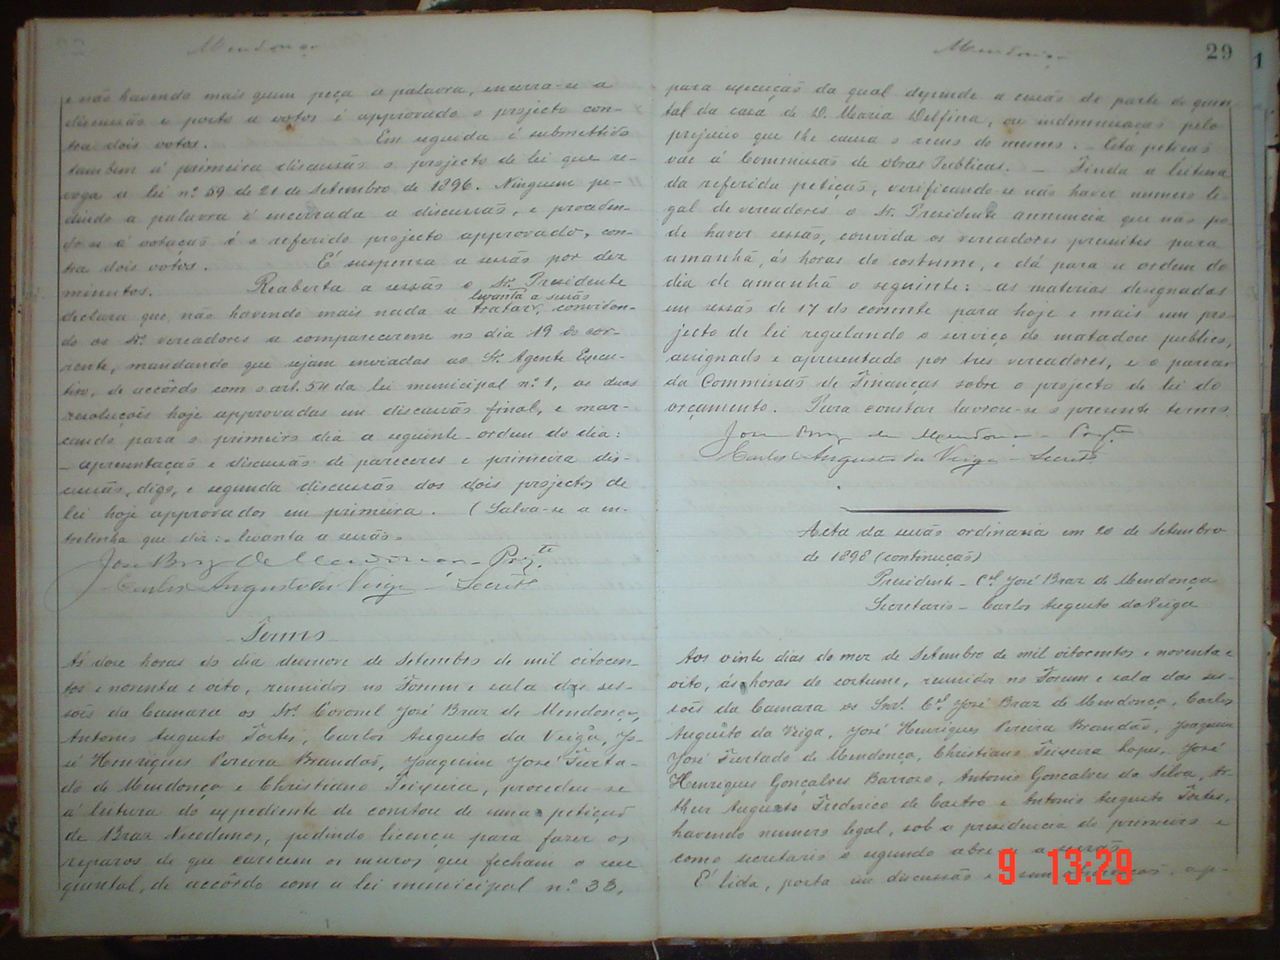 Mendonça
e não havendo mais quem peça a palavra, encerra-se a
discussão e posto a votos é approvado o projecto con-
tra dois votos. Em seguida é submettido
tambem á primeira discussão o projecto de lei que re-
voga a lei nº 59 de 21 de Setembro de 1896. Ninguem pe-
dindo a palavra é encerrada a discussão, e proceden-
do-se á votação é o referido projecto approvado, con-
tra dois votos. É suspensa a sessão por dez
minutos. Reaberta a sessão o Sr. Presidente
levanta a sessão
declara que, não havendo mais nada a tratar, convidan-
do os Srs. vereadores a comparecerem no dia 19 do cor-
rente, mandando que sejam enviadas ao Sr. Agente Execu-
tivo, de accôrdo com o art. 54 da lei municipal nº 1, as duas
resoluções hoje approvadas em discussão final, e mar-
cando para o primeiro dia a seguinte ordem do dia:
- apresentação e discussão de pareceres e primeira dis-
cussão, digo, e segunda discussão dos dois projectos de
lei hoje approvados em primeira. (Salva-se a en-
trelinha que diz: levanta a sessão.
José Braz de Mendonça - Prezte
Carlos Augusto da Veiga - Secretº
Termo
Ás doze horas do dia dezenove de Setembro de mil oitocen-
tos e noventa e oito, reunidos no Forum e sala das ses-
sões da Camara os Srs. Coronel José Braz de Mendonça,
Antonio Augusto Fortes, Carlos Augusto da Veiga, Jo-
sé Henriques Pereira Brandão, Joaquim José Furta-
do de Mendonça e Christiano Teixeira, procedeu-se
á leitura do expediente de constou de uma petição
de Braz, pedindo licença para fazer os
reparos de que carecem os muros que fecham o seu
quintal, de accôrdo com a lei municipal nº 33,
Mendonça
29
para execução da qual depende a cessão de parte do quin-
tal da casa de D. Maria Delfina, ou indemnisação pelo
prejuizo que lhe causa o recuo do mesmo. - Esta petição
vae á Commissão de Obras Publicas. - Finda a leitura
da referida petição, verificando-se não haver numero le-
gal de vereadores o Sr. Presidente annuncia que não po-
de haver sessão, convida os vereadores presentes para
amanhã, ás horas do costume, e dá para a ordem do
dia de amanhã o seguinte: as materias designadas
em sessão de 17 do corrente para hoje e mais um pro-
jecto de lei regulando o serviço do matadouro publico,
assignado e apresentado por tres vereadores, e o parecer
da Commissão de Finanças sobre o projecto de lei do
orçamento. Para constar lavrou-se o presente termo.
José Braz de Mendonça - Prezte
Carlos Augusto da Veiga - Secretº
Acta da sessão ordinaria em 20 de Setembro
de 1898 (continuação)
Presidente - Cel José Braz de Mendonça
Secretario - Carlos Augusto da Veiga
Aos vinte dias do mez de Setembro de mil oitocentos e noventa e
oito, ás horas do costume, reunidos no Forum e sala das ses-
sões da Camara os Snrs. Cel José Braz de Mendonça, Carlos
Augusto da Veiga, José Henriques Pereira Brandão, Joaquim
José Furtado de Mendonça, Christiano Teixeira Lopes, José
Henriques Gonçalves Barroso, Antonio Gonçalves da Silva, Ar-
thur Augusto Frederico de Castro e Antonio Augusto Fortes,
havendo numero legal, sob a presidencia do primeiro e
como secretario o segundo abre-se a sessão.
É lida, posta em discussão e sem ap-
9 13:29